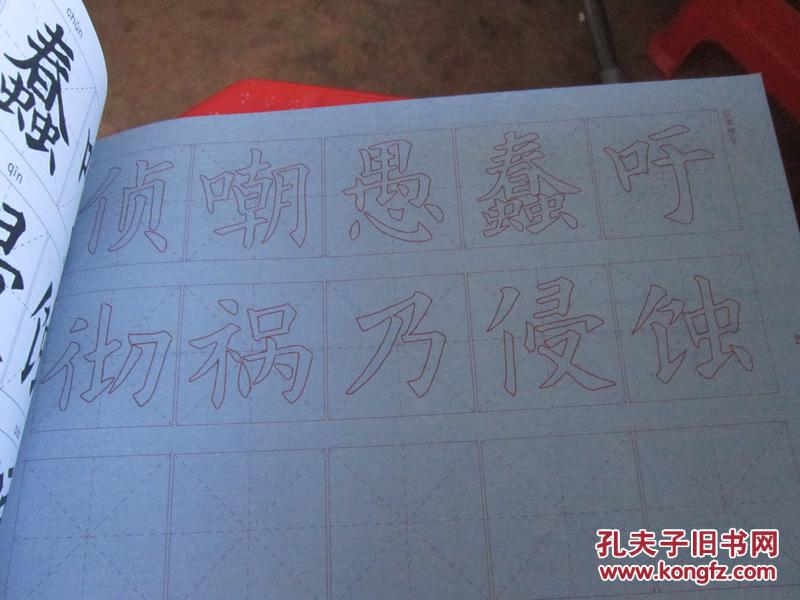 chǔn
蠢
qīn
侦 嘲 愚 蠢 吁
彻 祸 乃 侵 蚀
孔夫子旧书网
www.kongfz.com